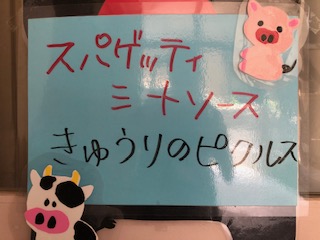 スパゲッティ
ミートソース
きゅうりのピクルス